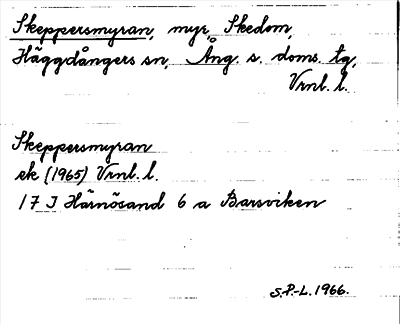 Skeppersmyran, myr, Skedom,
Häggdångers sn, Ång. s. doms. tg,
Vrnl. l.
Skeppersmyran
ek (1965) Vrnl. l.
17 I Härnösand 6 a Barsviken
S.P.-L. 1966.